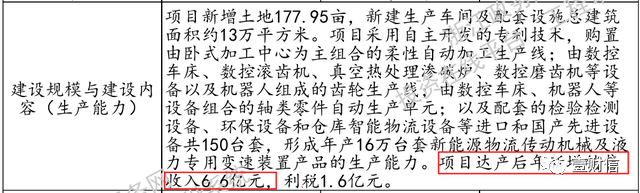 建设规模与建设内
容（生产能力）
项目新增土地177.95亩，新建生产车间及配套设施总建筑
面积约13万平方米。项目采用自主开发的专利技术，购置
由卧式加工中心为主组合的柔性自动加工生产线；由数控
车床、数控滚齿机、真空热处理渗碳炉、数控磨齿机等设
备以及机器人组成的齿轮生产线；由数控车床、机器人等
设备组合的轴类零件自动生产单元；以及配套的检验检测
设备、环保设备和仓库智能物流设备等进口和国产先进设
备共150台套，形成年产16万台套新能源物流传动机械及液
力专用变速装置产品的生产能力。项目达产后年新增销售
收入6.6亿元，利税1.6亿元。
壹财信